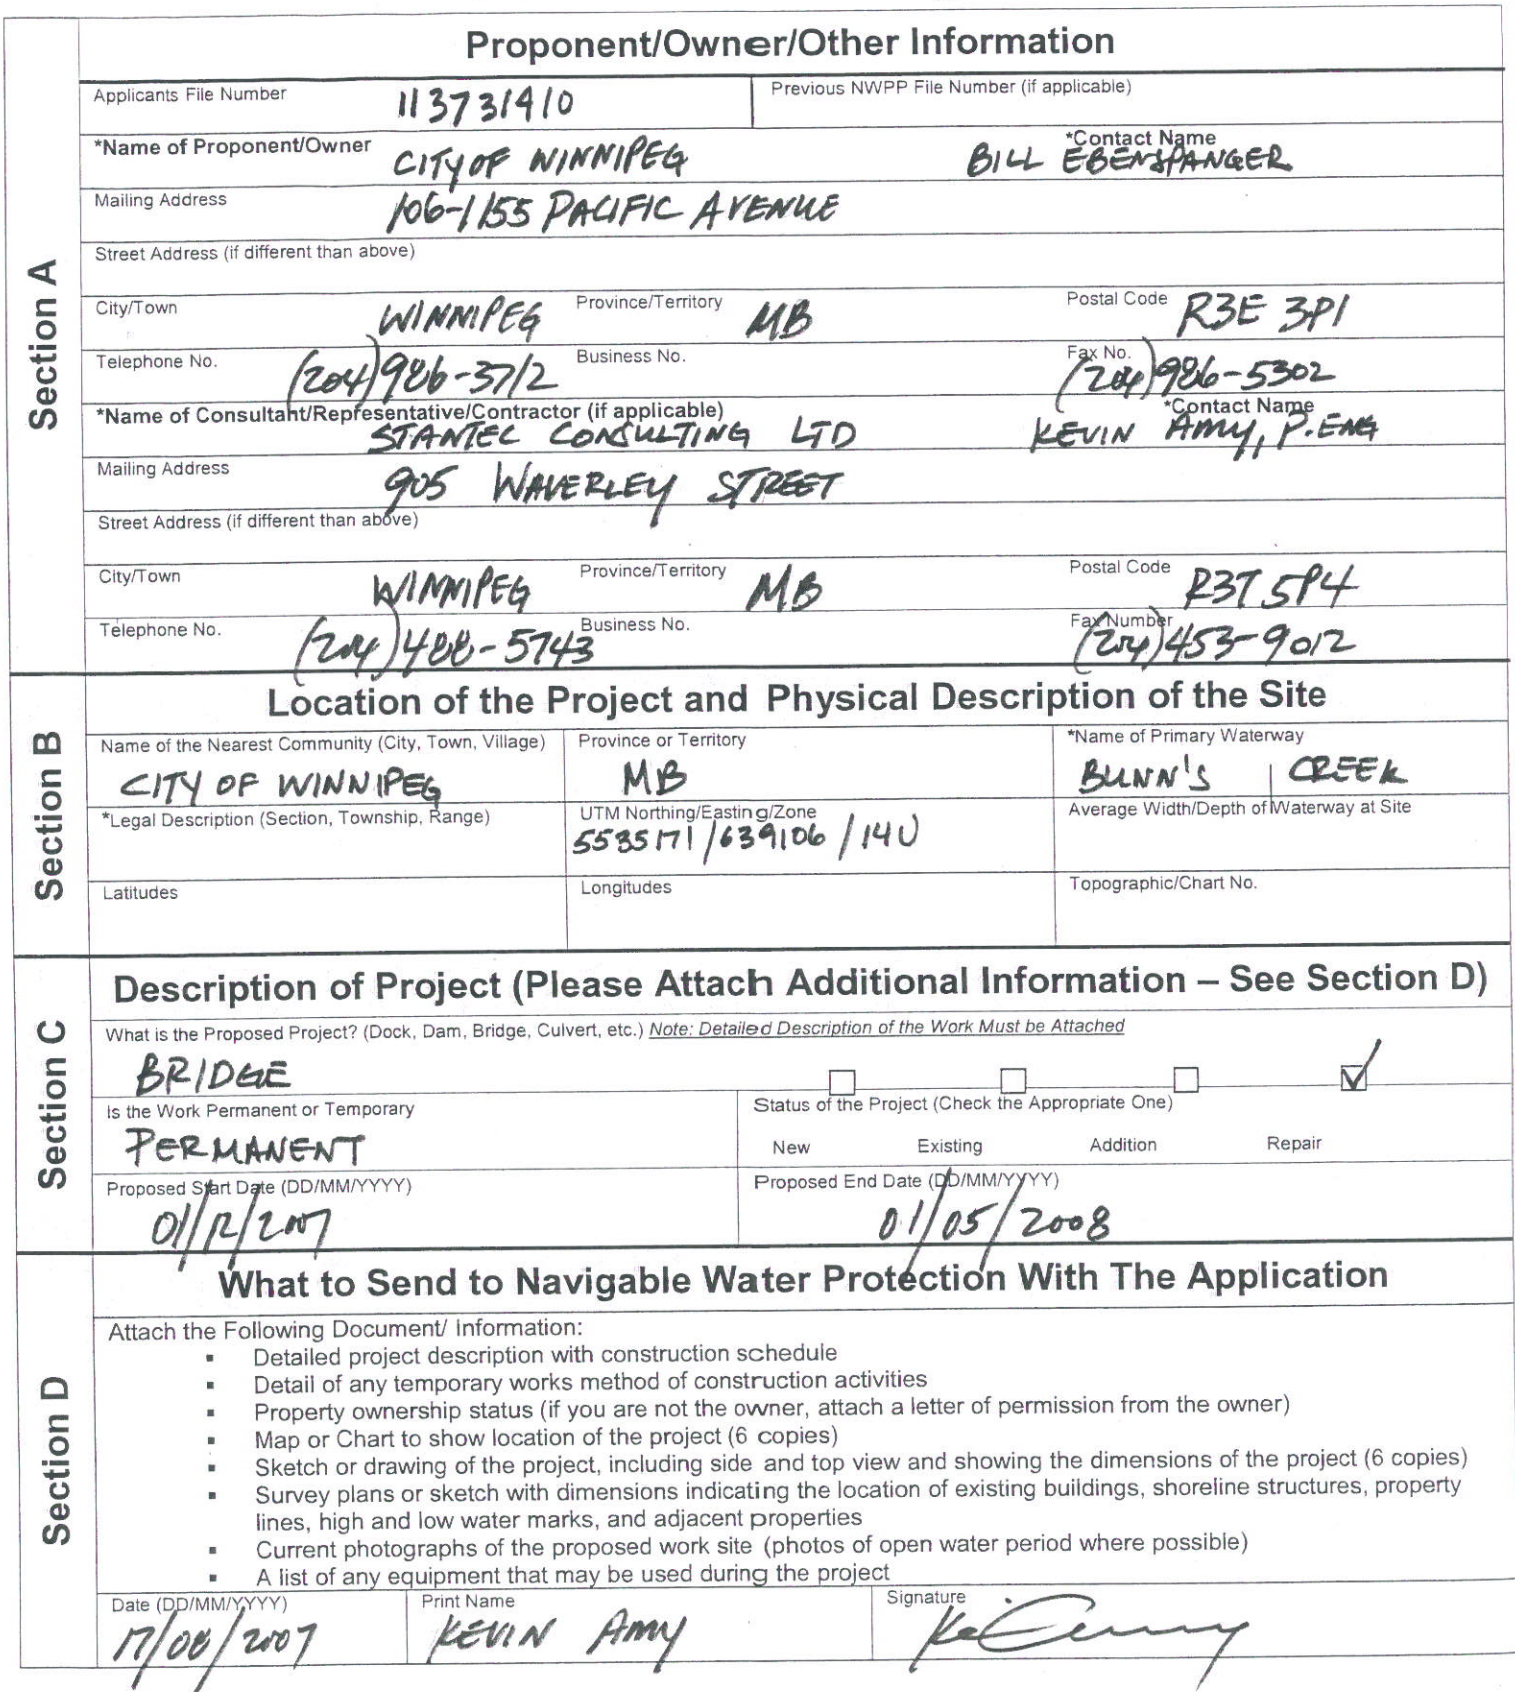 Proponent/Owner/Other Information
Section A
Applicants File Number 113731910 Previous NWPP File Number (if applicable)
*Name of Proponent/Owner CITY OF WINNIPEG *Contact Name BILL EBENSPANGER
Mailing Address 106-1155 PACIFIC AVENUE
Street Address (if different than above)
City/Town WINNIPEG Province/Territory MB Postal Code R3E 3P1
Telephone No. (204)986-3712 Business No. Fax No. (204)986-5302
*Name of Consultant/Representative/Contractor (if applicable) *Contact Name
STANTEC CONSULTING LTD KEVIN AMY, P.ENG
Mailing Address 905 WAVERLEY STREET
Street Address (if different than above)
City/Town WINNIPEG Province/Territory MB Postal Code R3T 5P4
Telephone No. (204)488-5743 Business No. Fax Number (204)453-9012
Section B
Location of the Project and Physical Description of the Site
Name of the Nearest Community (City, Town, Village) Province or Territory *Name of Primary Waterway
CITY OF WINNIPEG MB BUNN'S CREEK
*Legal Description (Section, Township, Range) UTM Northing/Easting/Zone Average Width/Depth of Waterway at Site
5535171/639106/14U
Latitudes Longitudes Topographic/Chart No.
Section C
Description of Project (Please Attach Additional Information – See Section D)
What is the Proposed Project? (Dock, Dam, Bridge, Culvert, etc.) Note: Detailed Description of the Work Must be Attached
BRIDGE
Is the Work Permanent or Temporary Status of the Project (Check the Appropriate One)
PERMANENT New Existing Addition Repair
Proposed Start Date (DD/MM/YYYY) Proposed End Date (DD/MM/YYYY)
01/12/2007 01/05/2008
Section D
What to Send to Navigable Water Protection With The Application
Attach the Following Document/ Information:
▪ Detailed project description with construction schedule
▪ Detail of any temporary works method of construction activities
▪ Property ownership status (if you are not the owner, attach a letter of permission from the owner)
▪ Map or Chart to show location of the project (6 copies)
▪ Sketch or drawing of the project, including side and top view and showing the dimensions of the project (6 copies)
▪ Survey plans or sketch with dimensions indicating the location of existing buildings, shoreline structures, property
lines, high and low water marks, and adjacent properties
▪ Current photographs of the proposed work site (photos of open water period where possible)
▪ A list of any equipment that may be used during the project
Date (DD/MM/YYYY) Print Name Signature
17/08/2007 KEVIN AMY